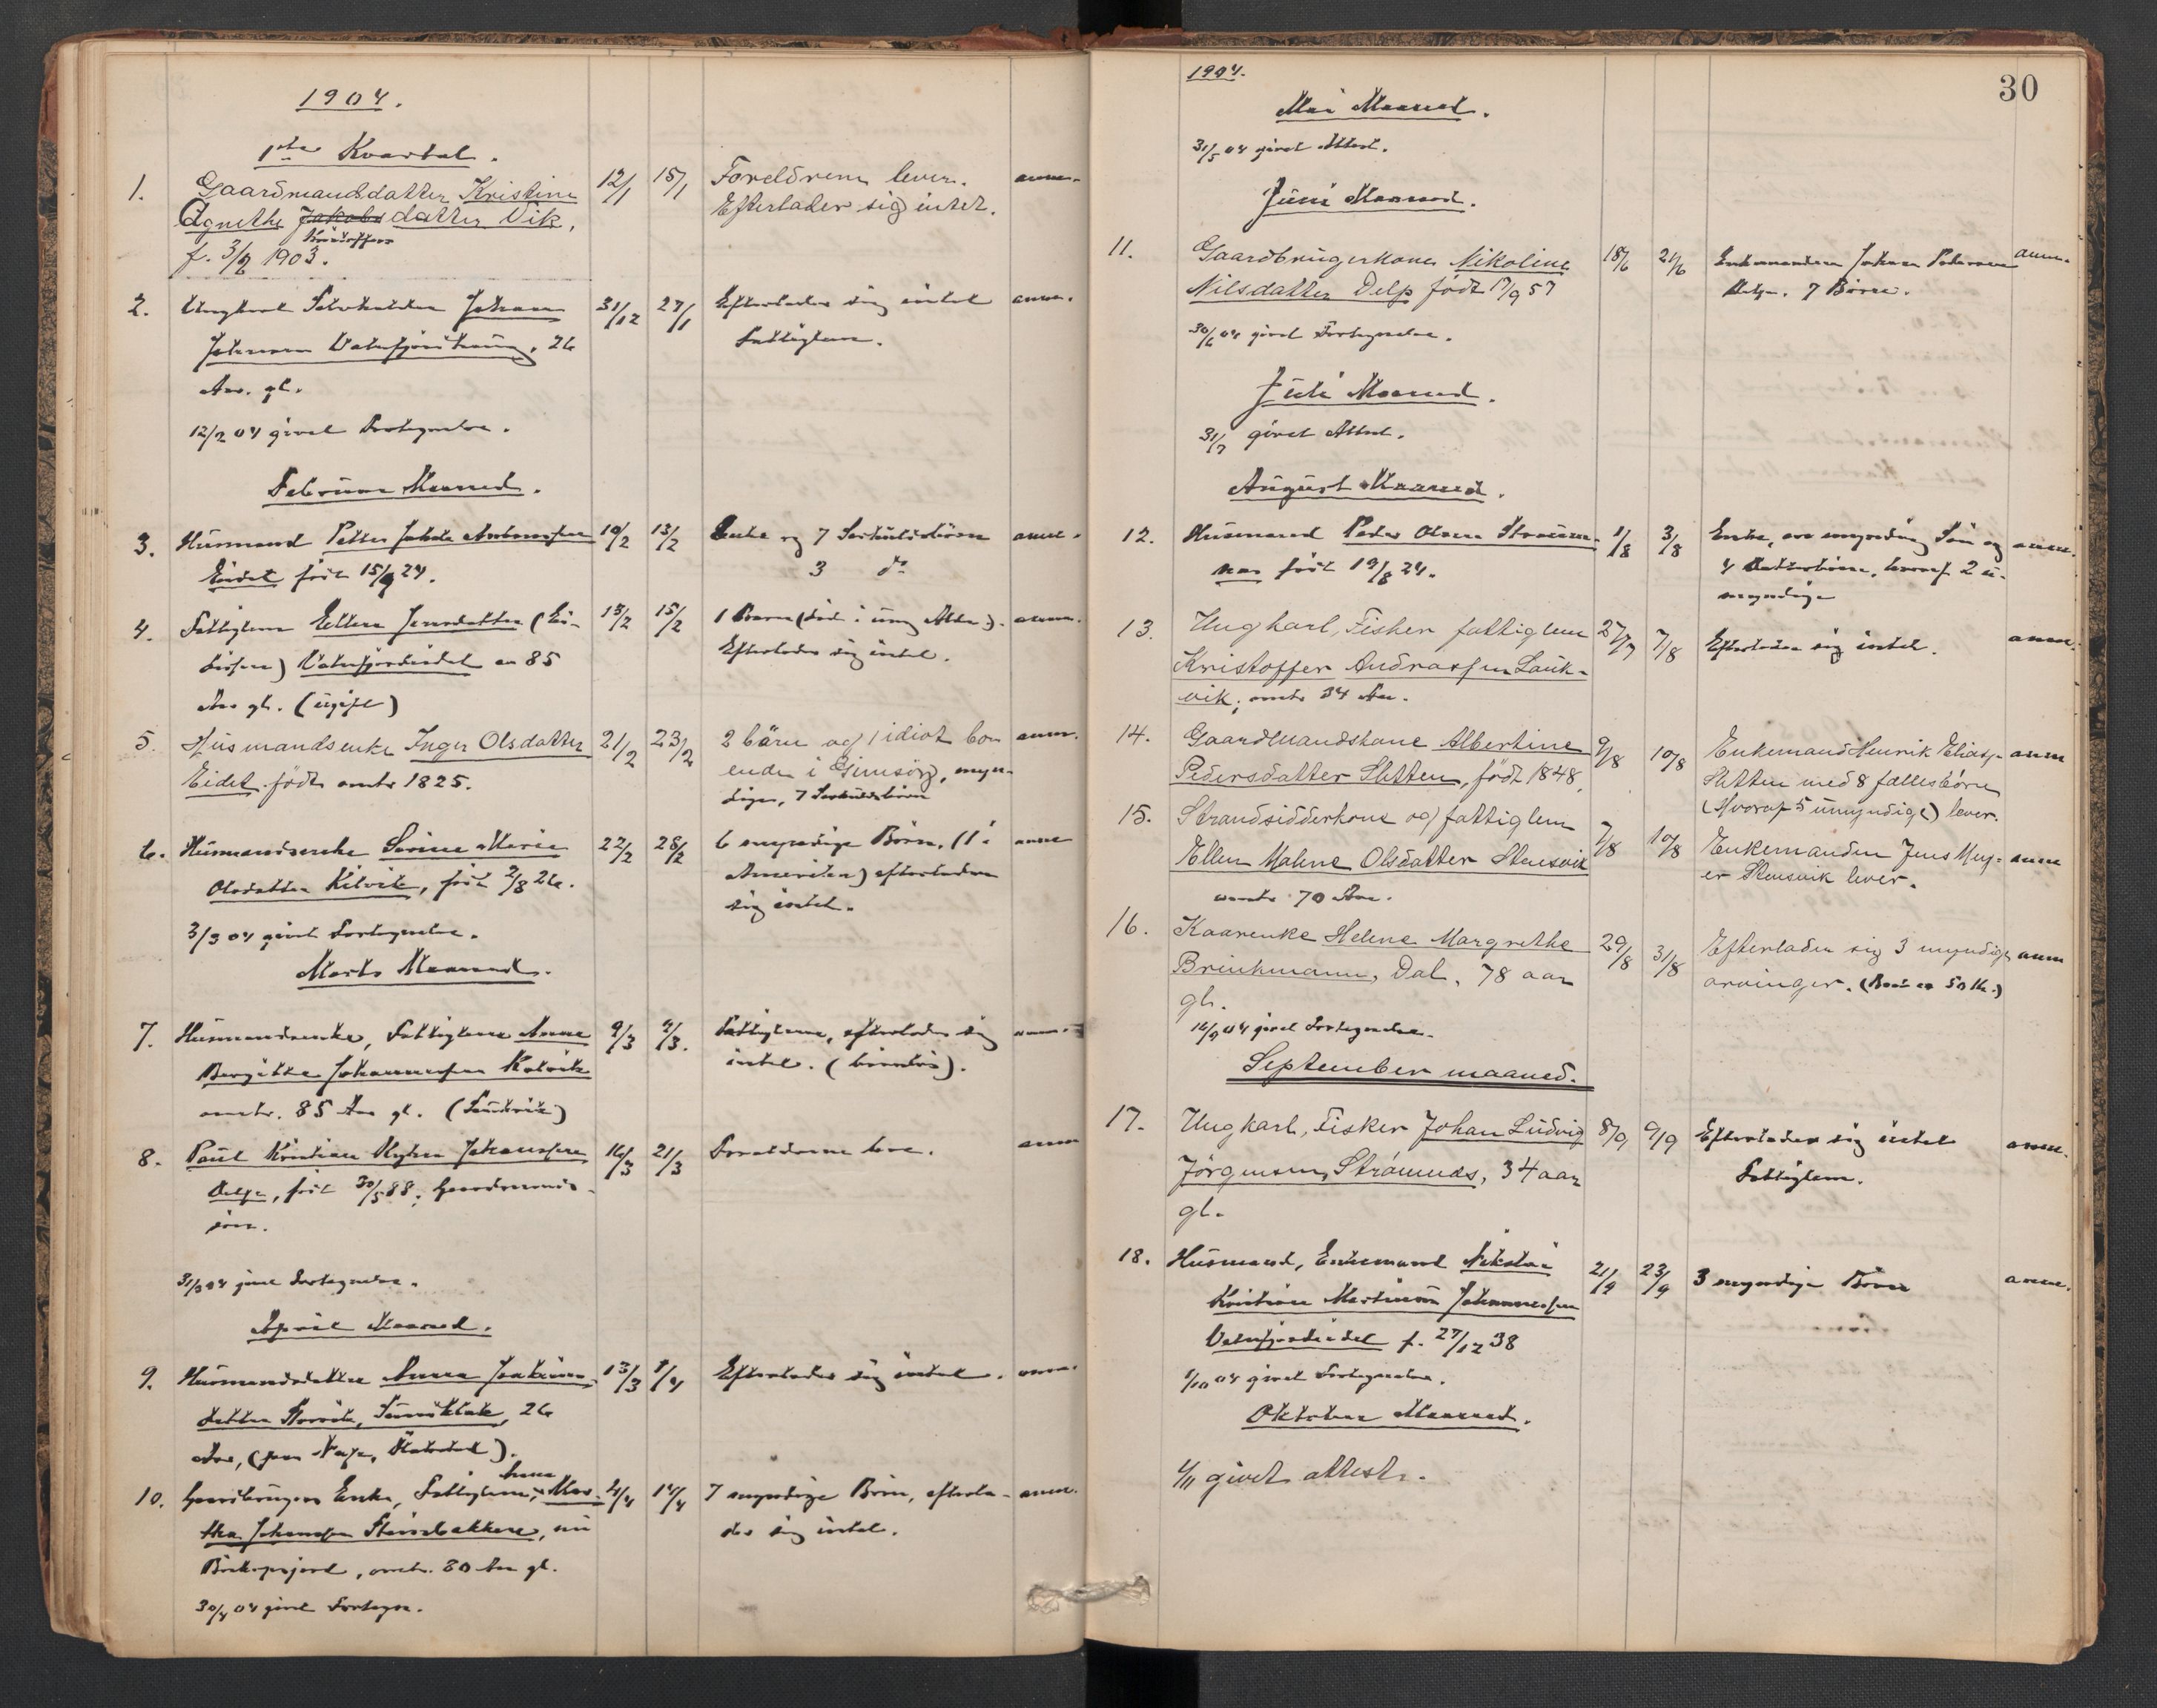 1904.
1ste Kvartal.
1. Gaardmandsdatter Kristine 12/1 15/1 Foreldrene lever. anm.
Agnethe Jakobsdatter Vik, Efterlader sig intet.
Kristoffers
f. 3/2 1903.
2. Ungkarl Johan 31/12 27/1 Efterlader sig intet anm.
Johnsen, 26 Fattiglem.
Aar gl.
12/2 04 givet Fortegnelse.
Februar Maaned.
3. Husmand Petter Jakob Antonsen 10/2 13/2 Enke og 7 Særkuldsbörn anm.
Eidet födt 15/9 24. 3 do
4. Fattiglem Ellen Jensdatter 13/2 15/2 1 Barn (död i ung Alder). anm.
Vatnfjordeidet ca 85 Efterlader sig intet.
Aar gl. (ugift)
5. Husmandsenke Inger Olsdatter 21/2 23/2 2 börn og 1 idiot bo- anm.
Eidet födt omtr 1825. ende i Gimsöy, myn-
dige, 7 Særkuldsbörn
6. Husmandsenke Sörine Marie 22/2 28/2 6 myndige Börn, (1 i anm
Olsdatter Kilvik, födt 2/8 26. Amerika) efterlader
sig intet.
3/3 04 givet Fortegnelse.
Marts Maaned.
7. Husmandsenke, Fattiglem Anne 9/3 Fattiglem, efterlader sig anm.
Bergitte Johannesen Kalvik intet. (barnlös).
omtr. 85 Aar gl. (Laukvik)
8. Paul Kristian Johansen 16/3 21/3 Foreldrene leve. anm
Delp, födt 30/5 88, Gaardmands-
sön.
31/3 04 givet Fortegnelse.
April Maaned.
9. Husmandsdatter Anna Joakims- 13/3 Efterlader sig intet. anm.
datter, 26
Aar,
10. Gaardbrugers Enke, Fattiglem, Anne Mar- 4/4 14/4 7 myndige Börn, efterla- anm.
tha Johansen Steinbakken, nu der sig intet.
omtr. 80 Aar gl.
30/4 04 givet Fortegn.
1904. 30
Mai Maaned.
31/5 04 givet Attest.
Juni Maaned.
11. Gaardbrugerkone Nikoline 18/6 21/6 Enkemanden Johan Pedersen anm.
Nilsdatter Delp födt 17/9 57 Delp. 7 Börn.
30/6 04 givet Fortegnelse.
Juli Maaned.
31/7 givet Attest.
August Maaned.
12. Husmand Peder Olsen Straum- 1/8 3/8 Enke, en myndig Sön og anm.
nes födt 19/8 24. 4 Datterbörn, hvoraf 2 u-
myndige
13. Ungkarl, Fisker fattiglem 27/7 7/8 Efterlader sig intet. anm.
Kristoffer Andreassen Lauk-
vik, omtr 34 Aar.
14. Gaardmandskone Albertine 9/8 10/8 Enkemand Henrik Elias. anm
Pedersdatter Sletten, födt 1848, Sletten med 8 fællesbörn
(Hvoraf 5 umyndige) lever.
15. Strandsidderkone og fattiglem
Ellen Malene Olsdatter Stensvik 7/8 10/8 Enkemanden Jens Mey- anm
er Stensvik lever.
omtr 70 Aar.
16. Kaarenke Helene Margrethe 29/8 31/8 Efterlader sig 3 myndige anm
Brinkmann, Dal, 78 aar arvinger. (Boet er 50 Kr.)
gl.
16/9 04 givet Fortegnelse.
September maaned.
17. Ungkarl, Fisker Johan Ludvig 8/9 9/9 Efterlader sig intet anm.
Jörgensen, Strömnes, 34 aar Fattiglem.
gl.
18. Husmand, Enkemand Nikolai 21/9 23/9 3 myndige Börn anm.
Kristian Martinus Johannessen
Vatnfjordeidet f. 27/12 38
1/10 04 givet Fortegnelse.
Oktober Maaned.
1/11 givet attest.